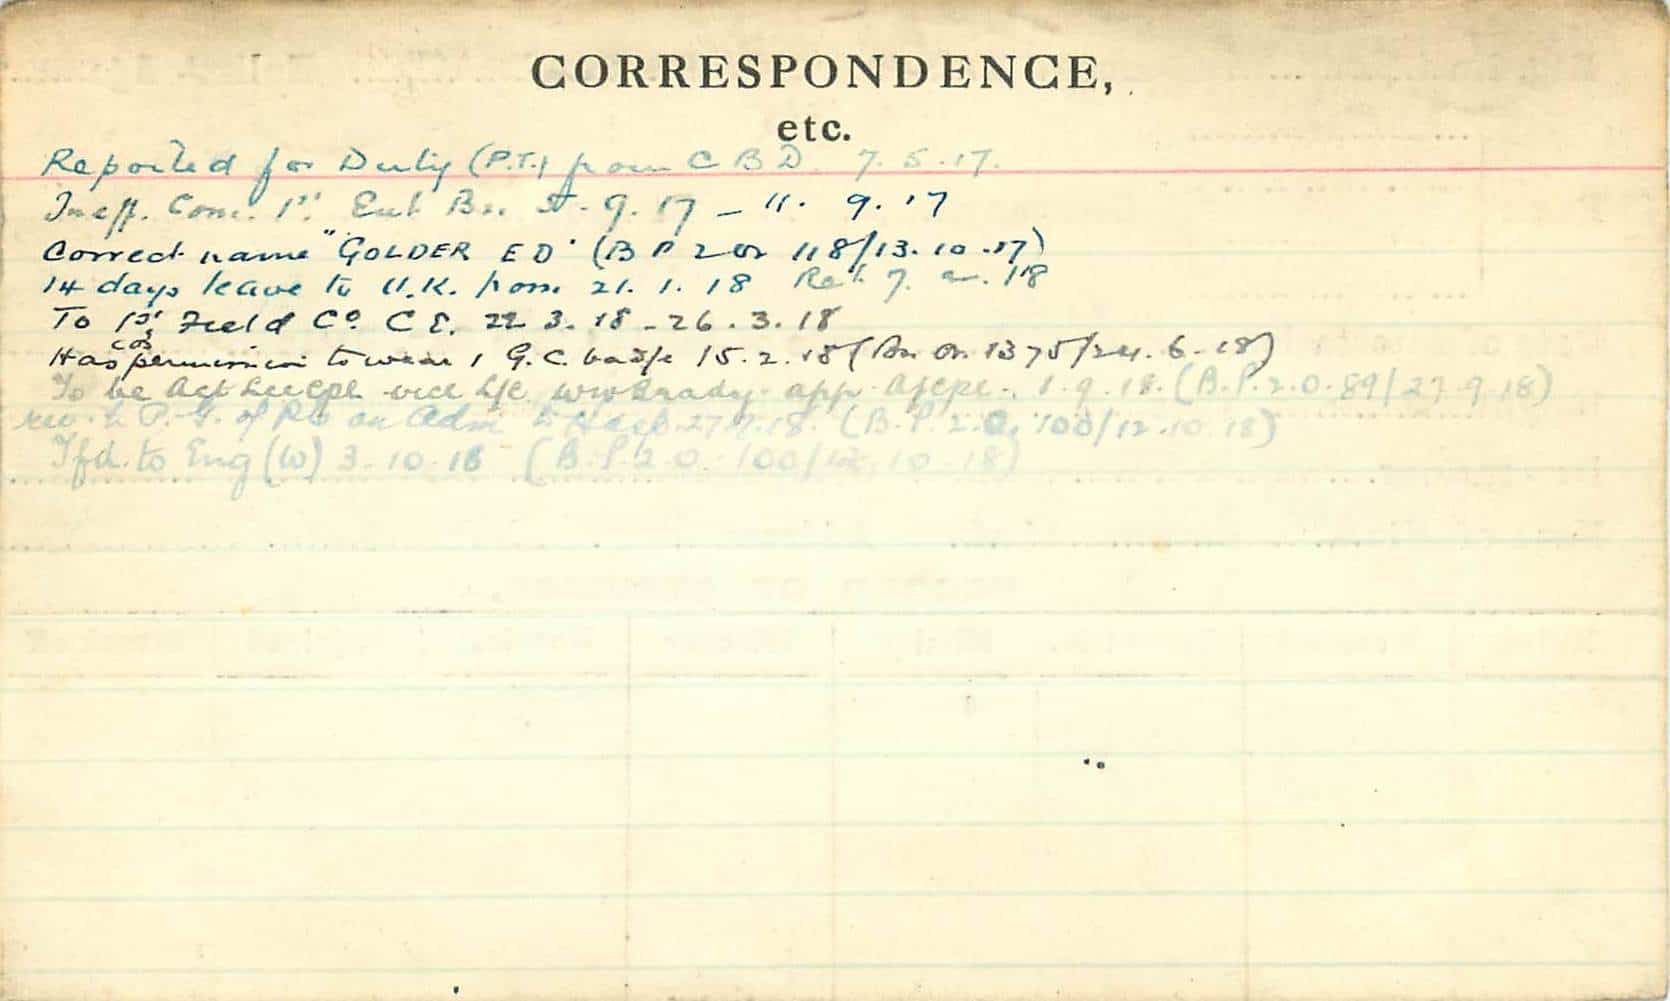 CORRESPONDENCE,
etc.
Reported for Duty (P.T.) from C B D. 7. 5. 17.
Ineff. Com. 1st Ent Bn. 5. 9. 17 - 11. 9. 17
Correct name "GOLDER ED" (B P 2 or 118/13.10.17)
14 days leave to U.K. from 21. 1. 18 Ret. 7. 2. 18
To 1st Field Co. C E. 22 3. 18 - 26. 3. 18
Has COs permission to wear 1 G.C. badge 15. 2. 18 (Bn On 1375/24. 6. 18)
To be Act vice L/C Brady. app. 1. 9. 18. (B. P. 2. 0. 89/27 9. 18)
rev. to P. G. of on Adm to Hosp. 27 9. 18. (B. P. 2. 0. 100/12. 10. 18)
Tfd. to Eng (W) 3. 10. 18 (B. P. 2 0. 100/12. 10. 18)